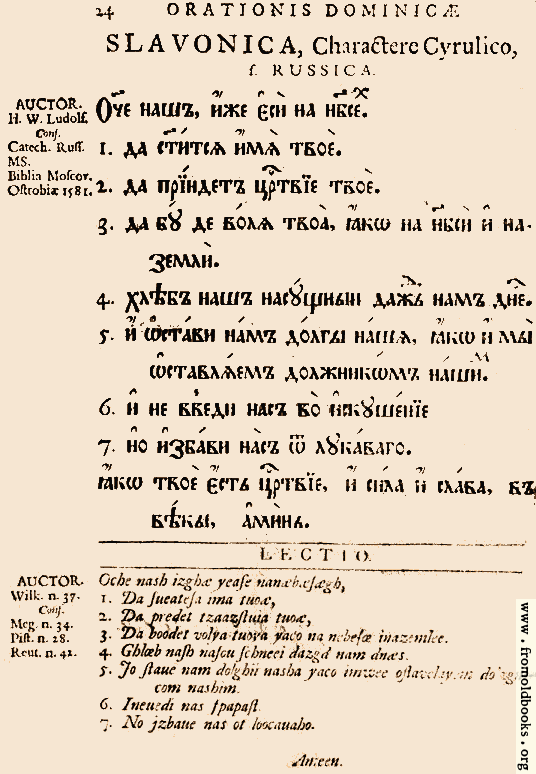 24 ORATIONIS DOMINICÆ
SLAVONICA, Charactere Cyrulico,
ſ. RUSSICA.
AUCTOR.
H. W. Ludolf.
Conf.
Catech. Ruſſ.
MS.
Biblia Moſcov.
Oſtrobiæ 1581.
Ѻч҃е нашъ, и҆́же є҆сѝ на нб҃сѐ.
1. да ст҃и́тсѧ и҆́мѧ твоѐ.
2. да прїи́детъ црⷭ҇твїе твоѐ.
3. да бꙋ́ де во́лѧ твоѧ̀, ꙗ҆́кѡ на нб҃сѝ и҆ на-
землѝ.
4. хлѣ́бъ нашъ насꙋ́щныи да́жь намъ дне́.
5. и҆ ѡ҆ста́ви на́мъ до́лгы на́шѧ, ꙗ҆́кѡ и҆ мы̀
ѡ҆ставлѧ́емъ должникѡ́мъ на́шиⷨ.
6. и҆ не введѝ насъ во и҆скꙋше́нїе
7. но и҆зба́ви насъ ѿ лꙋка́ваго.
ꙗ҆́кѡ твоѐ є҆́сть црⷭ҇твїе, и҆ си́ла и҆ сла́ва, въ
вѣ́кы, а҆ми́нь.
LECTIO.
AUCTOR.
Wilk. n. 37.
Conf.
Meg. n. 34.
Piſt. n. 28.
Reut. n. 42.
Otche nash izghæ yeaſe
1. Da ſueateſa ima tuoæ,
2. Da predet tzaazſtuia tuoæ,
3. Da boodet volya tuoya yaco na nebeſæ inazemlee.
4. Ghlæb naſh naſou ſchneei dazgd nam dnæs.
5. Jo ſtaue nam dolghii nasha yaco imwee
com nashim.
6. Ineuedi nas ſpapaſt.
7. No jzbaue nas ot loocauaho.
Ameen.
www.fromoldbooks.org